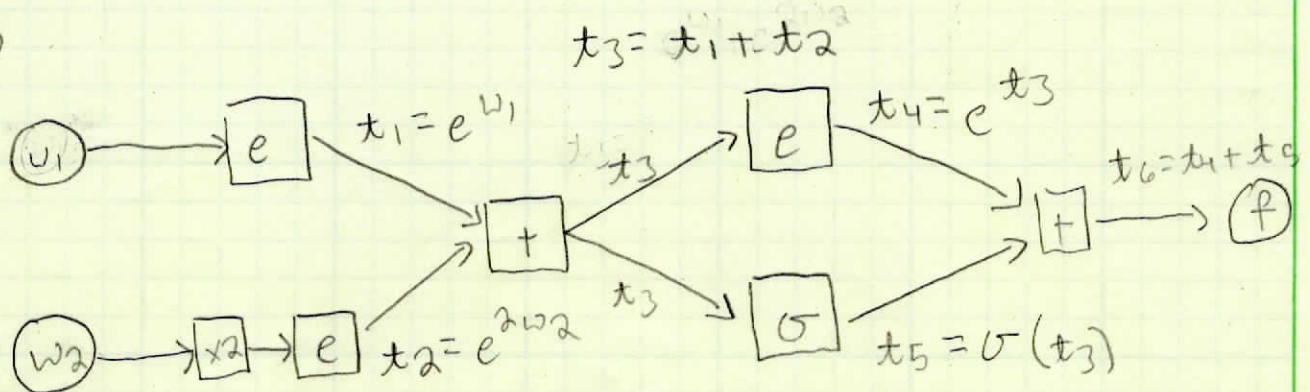 t3 = t1 + t2
w1 e t1 = e^w1 t3 e t4 = e^t3
+ t6 = t4 + t5 + f
w2 x2 e t2 = e^2w2 t3 σ t5 = σ(t3)